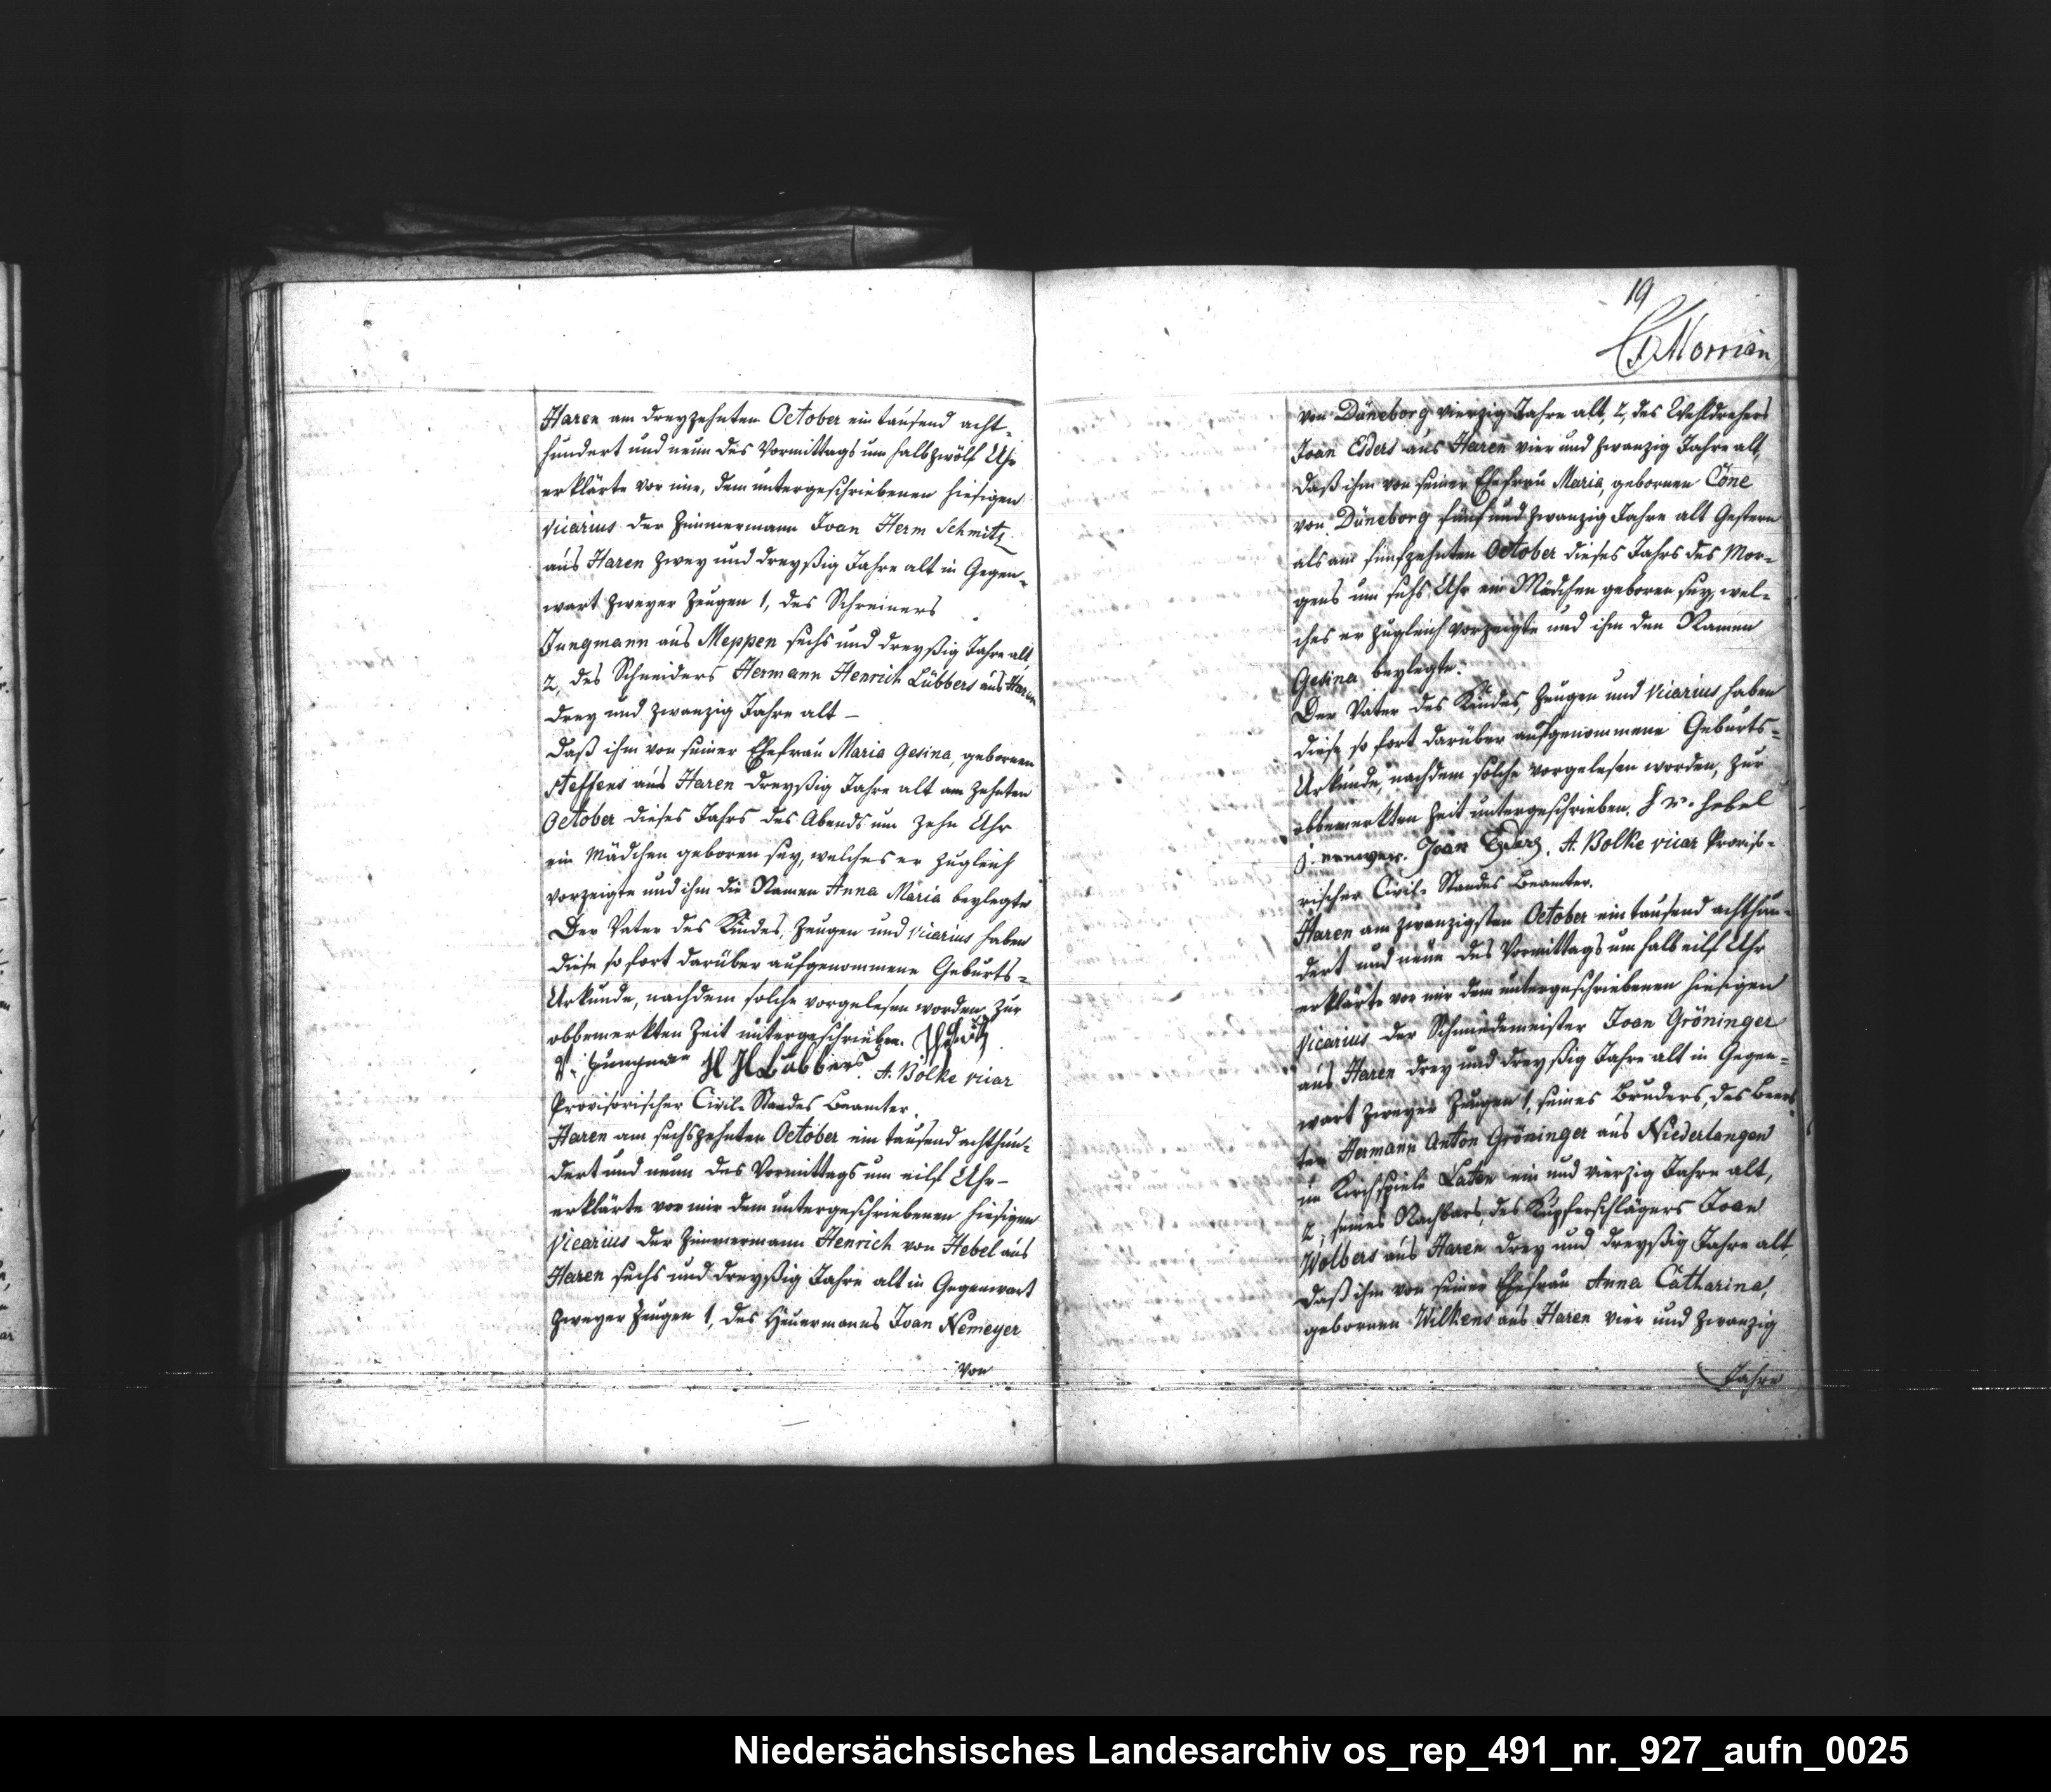 Haren am dreyzehnten October ein tausend acht-
hundert und neun des Vormittags um halb zwölf Uhr
erklärte vor mir, dem untergeschriebenen hiesigen
Vicarius der Zimmermann Joan Herm Schmitz
aus Haren zwey und dreyßig Jahre alt in Gegen-
wart zweyer Zeugen 1, des Schreiners
Jungmann aus Meppen sechs und dreyßig Jahre alt,
2, des Schneiders Hermann Henrich Lübbers aus Haren
drey und zwanzig Jahre alt –
daß ihm von seiner Ehefrau Maria Gesina, gebornen
Steffens aus Haren dreyßig Jahre alt am zehnten
October dieses Jahrs des Abends um zehn Uhr
ein Mädchen geboren sey, welches er zugleich
vorzeigte und ihm die Namen Anna Maria beylegte
Der Vater des Kindes, Zeugen und Vicarius haben
diese so fort darüber aufgenommene Geburts-
Urkunde, nachdem solche vorgelesen worden, zur
obbemerkten Zeit untergeschrieben.
Jungman H H Lübbers. A. Bölke vicar
Provisorischer Civil-Standes Beamter.
Haren am sechszehnten October ein tausend achthun-
dert und neun des Vormittags um eilf Uhr –
erklärte vor mir dem untergeschriebenen hiesigen
Vicarius der Zimmermann Henrich von Hebel aus
Haren sechs und dreyßig Jahre alt in Gegenwart
zweyer Zeugen 1, des Heuermanns Joan Nemeyer
von
19
Morrien
von Düneborg vierzig Jahre alt, 2, des
Joan Esders aus Haren vier und zwanzig Jahre alt,
daß ihm von seiner Ehefrau Maria, gebornen Cöne
von Düneborg fünf und zwanzig Jahre alt Gestern
als am fünfzehnten October dieses Jahrs des Mor-
gens um sechs Uhr ein Mädchen geboren sey, wel-
ches er zugleich vorzeigte und ihm den Namen
Gesina beylegte.
Der Vater des Kindes, Zeugen und Vicarius haben
diese so fort darüber aufgenommene Geburts-
Urkunde, nachdem solche vorgelesen worden, zur
obbemerkten Zeit untergeschrieben. H v. Hebel
Joan Esders. A. Bolke vicar Proviso-
rischer Civil-Standes Beamter.
Haren am zwanzigsten October ein tausend achthun-
dert und neun des Vormittags um halb eilf Uhr
erklärte vor mir dem untergeschriebenen hiesigen
Vicarius der Schmiedemeister Joan Gröninger
aus Haren drey und dreyßig Jahre alt in Gegen-
wart zweyer Zeugen 1, seines Bruders, des Beerb-
ten Hermann Anton Gröninger aus Niederlangen
im Kirchspiele Laten ein und vierzig Jahre alt,
2, seines Nachbars, des Kupferschlägers Joan
Wolbers aus Haren drey und dreyßig Jahre alt,
daß ihm von seiner Ehefrau Anna Catharina,
gebornen Wilkens aus Haren vier und zwanzig
Jahre
Niedersächsisches Landesarchiv os_rep_491_nr._927_aufn_0025